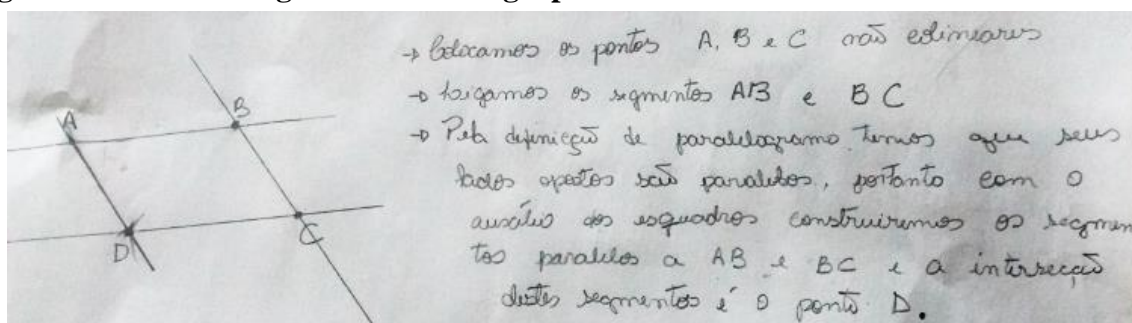 A
B
C
D
→ Colocamos os pontos A, B e C não colineares
→ Ligamos os segmentos AB e BC
→ Pela definição de paralelogramo temos que seus
lados opostos são paralelos, portanto com o
auxílio dos esquadros construiremos os segmen
tos paralelos a AB e BC e a intersecção
destes segmentos é o ponto D.